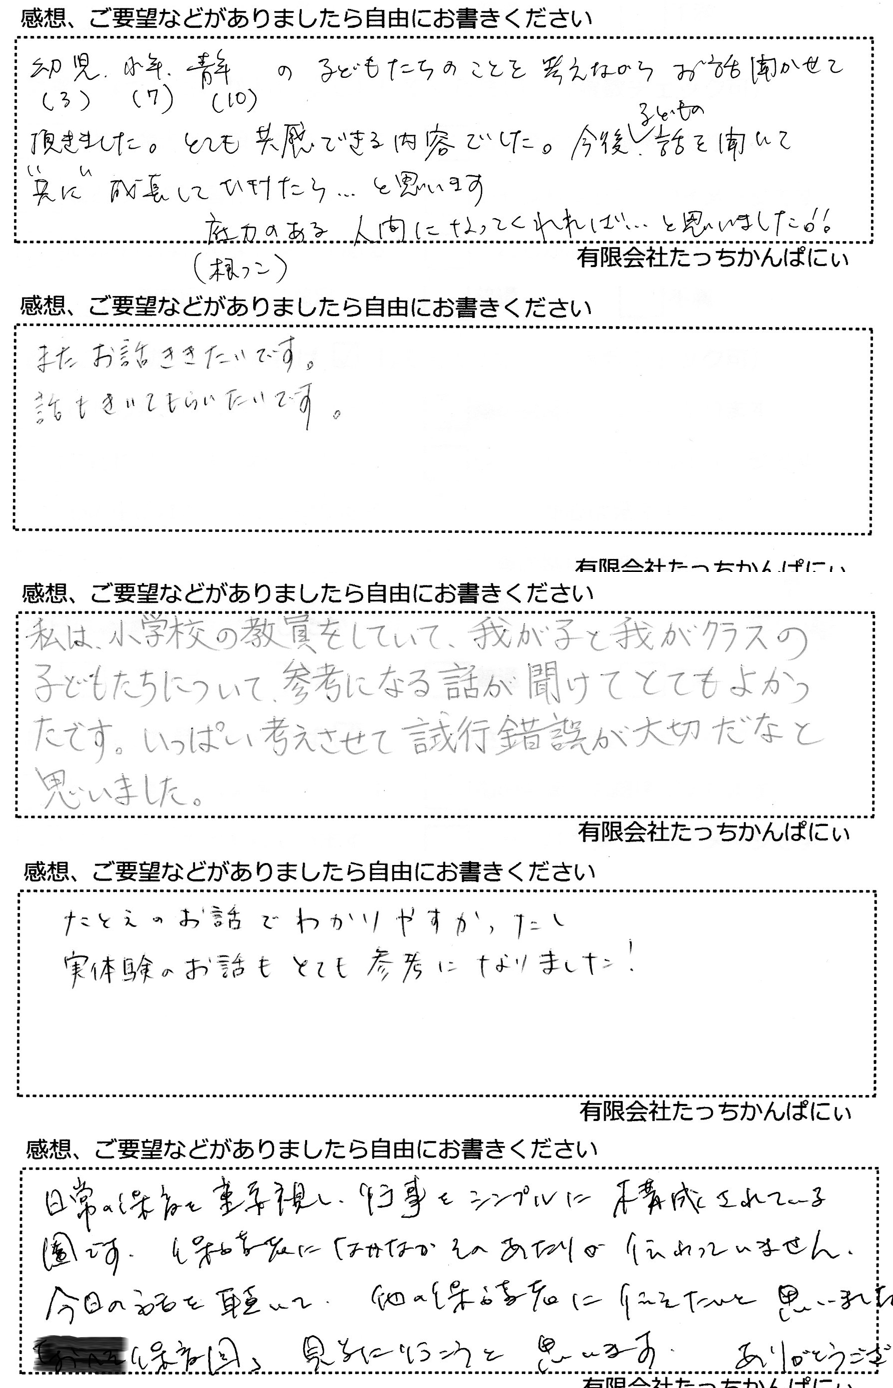 感想、ご要望などがありましたら自由にお書きください
幼児、少年、青年 の 子どもたちのことを 考えながら お話聞かせて
(3) (7) (10)
頂きました。とても 共感できる内容でした。今後、子どもの話を聞いて
"共に" 成長していけたら…と思います
底力のある 人間になってくれれば…と思いました!!
(根っこ)
有限会社たっちかんぱにぃ
感想、ご要望などがありましたら自由にお書きください
またお話ききたいです。
話もきいてもらいたいです。
有限会社たっちかんぱにぃ
感想、ご要望などがありましたら自由にお書きください
私は、小学校の教員をしていて、我が子と我がクラスの
子どもたちについて、参考になる話が聞けてとてもよかっ
たです。いっぱい考えさせて試行錯誤が大切だなと
思いました。
有限会社たっちかんぱにぃ
感想、ご要望などがありましたら自由にお書きください
たとえのお話でわかりやすかったし
実体験のお話もとても参考になりました!
有限会社たっちかんぱにぃ
感想、ご要望などがありましたら自由にお書きください
日常の保育を重要視し、行事をシンプルに構成されている
園です。保護者になかなかそのあたりが伝わっていません。
今日の話を聴いて、他の保護者に伝えたいと思いました
保育園、見学に行こうと思います。ありがとうござ
有限会社たっちかんぱにぃ